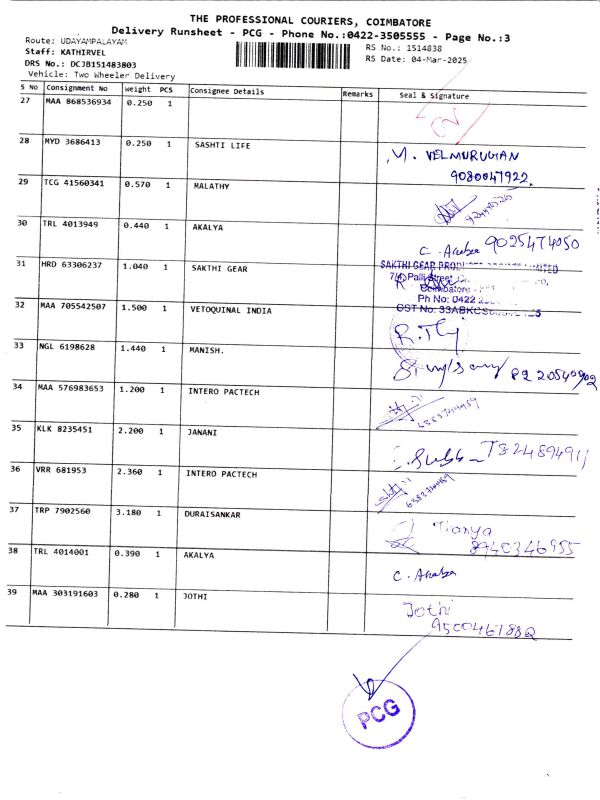 THE PROFESSIONAL COURIERS, COIMBATORE
Delivery Runsheet - PCG - Phone No.:0422-3505555 - Page No.:3
Route: UDAYAMPALAYAM
RS No.: 1514838
Staff: KATHIRVEL
RS Date: 04-Mar-2025
DRS No.: DCJB151483803
Vehicle: Two Wheeler Delivery
S No Consignment No Weight PCS Consignee Details Remarks Seal & Signature
27 MAA 868536934 0.250 1
28 MYD 3686413 0.250 1 SASHTI LIFE
M. VELMURUGAN
9080047922
29 TCG 41560341 0.570 1 MALATHY
30 TRL 4013949 0.440 1 AKALYA
C. Akalya 9025474050
31 HRD 63306237 1.040 1 SAKTHI GEAR
SAKTHI GEAR
7/4, Palli Street
Coimbatore
Ph No: 0422
GST No: 33ABKCS
32 MAA 705542507 1.500 1 VETOQUINAL INDIA
33 NGL 6198628 1.440 1 MANISH.
34 MAA 576983653 1.200 1 INTERO PACTECH
35 KLK 8235451 2.200 1 JANANI
36 VRR 681953 2.360 1 INTERO PACTECH
37 TRP 7902560 3.180 1 DURAISANKAR
8940346955
38 TRL 4014001 0.390 1 AKALYA
C. Akalya
39 MAA 303191603 0.280 1 JOTHI
Jothi
PCG